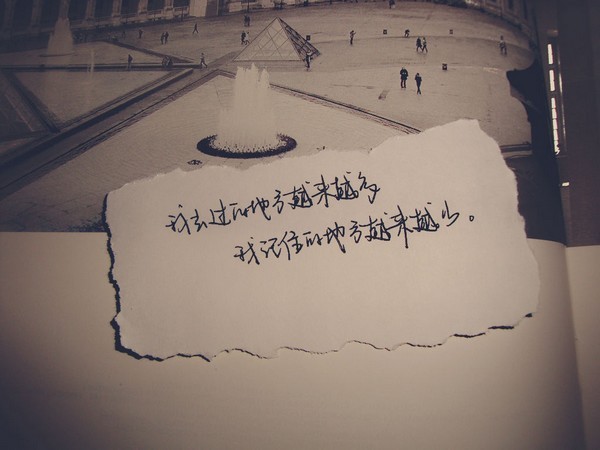 我去过的地方越来越多
我记住的地方越来越少。